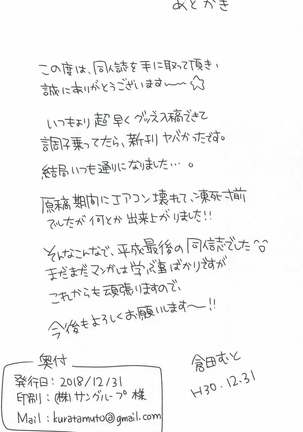 あとがき
この度は、同人誌を手に取って頂き、
誠にありがとうございます〜〜☆
いつもより超早くグッズ入稿できて
調子乗ってたら、新刊ヤバかったです。
結局いつも通りになりました…。
原稿期間にエアコン壊れて、凍死寸前
でしたが何とか出来上がりました!!
そんなこんなで、平成最後の同人誌でした
まだまだマンガは学ぶ事ばかりですが
これからも頑張りますので、
今後もよろしくお願いします〜!!
倉田むと
H30.12.31
奥付
発行日:2018/12/31
印刷:(株)サングループ様
Mail:kuratamuto@gmail.com